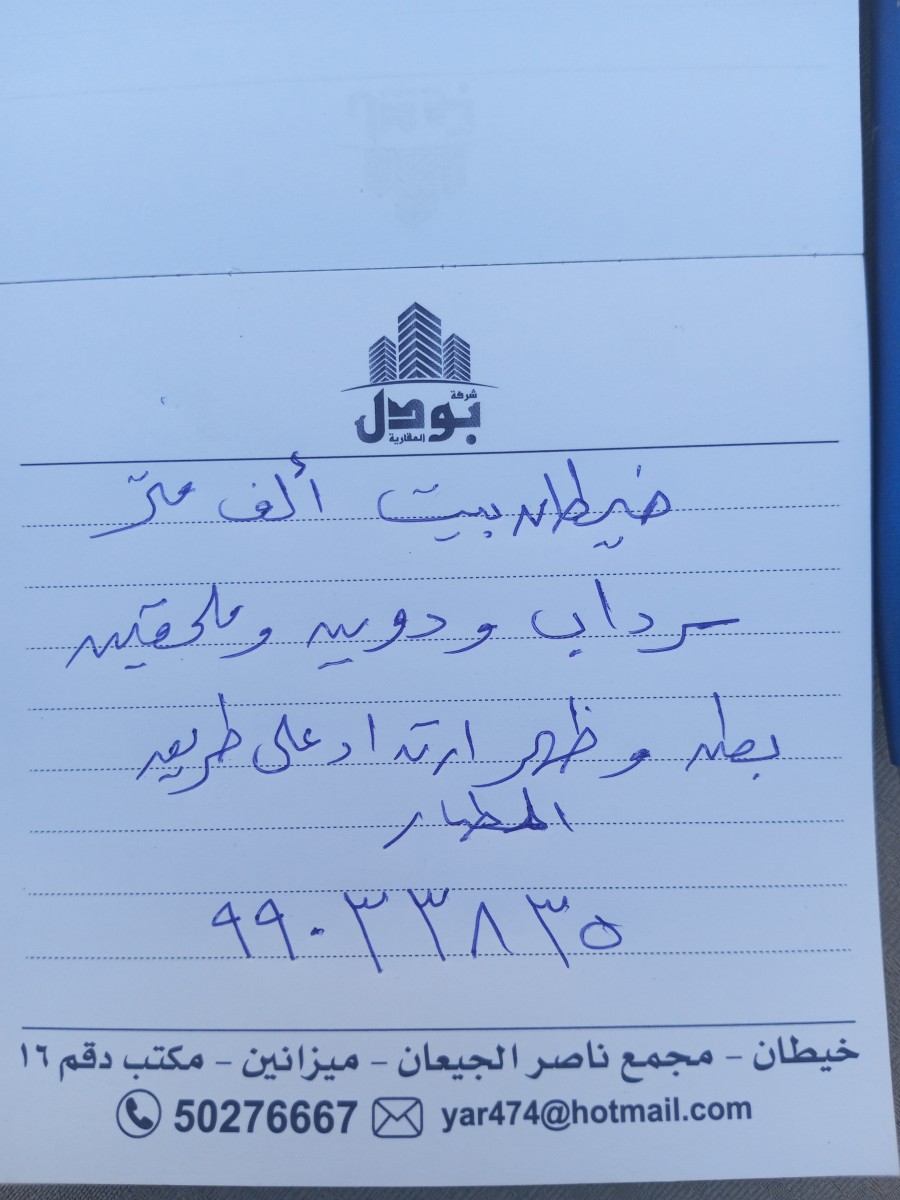 شركة
بودل
العقارية
خيطان بيت ألف متر
سرداب ودورين وملحقين
بطن وظهر ارتداد على طريق
المطار
٩٩٠٣٣٨٣٥
خيطان - مجمع ناصر الجيعان - ميزانين - مكتب دقم ١٦
50276667 yar474@hotmail.com